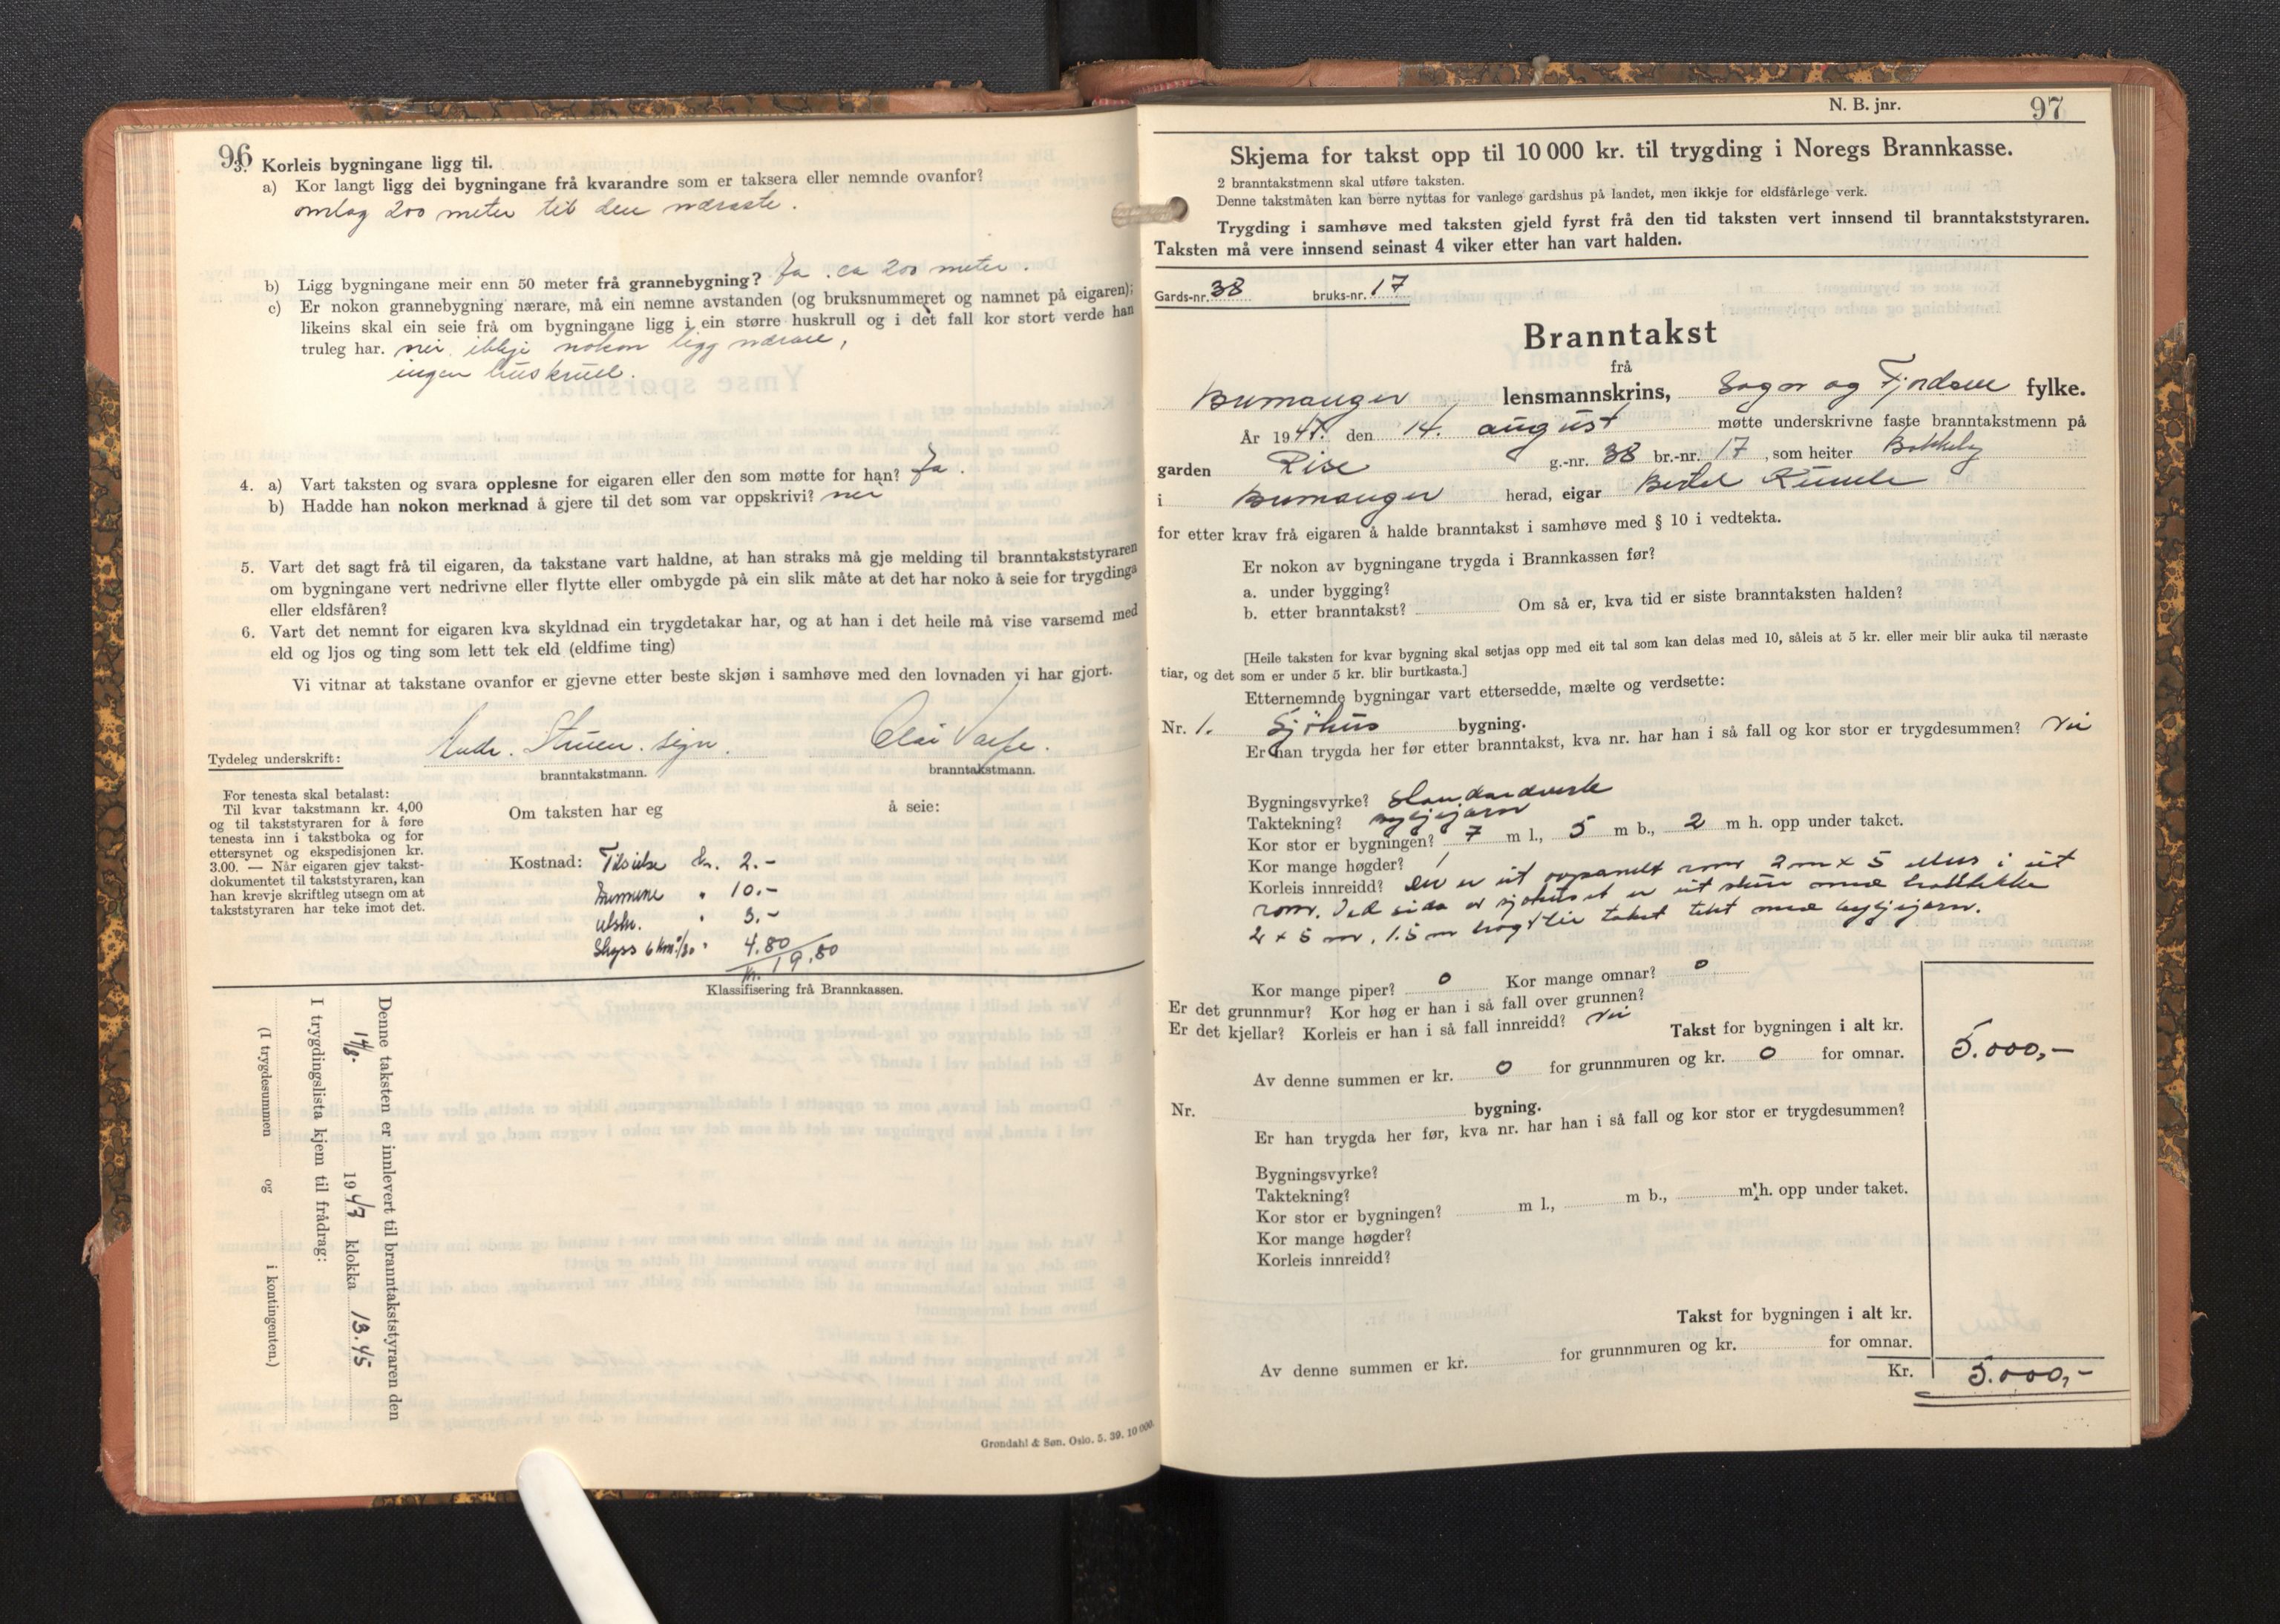 96
3. Korleis bygningane ligg til.
a) Kor langt ligg dei bygningane frå kvarandre som er taksera eller nemnde ovanfor?
omlag 200 meter til den næraste.
b) Ligg bygningane meir enn 50 meter frå grannebygning? Ja. ca 200 meter.
c) Er nokon grannebygning nærare, må ein nemne avstanden (og bruksnummeret og namnet på eigaren);
likeins skal ein seie frå om bygningane ligg i ein større huskrull og i det fall kor stort verde han
truleg har. nei, ikkje nokon ligg nærare,
ingen huskrull.
4. a) Vart taksten og svara opplesne for eigaren eller den som møtte for han? Ja.
b) Hadde han nokon merknad å gjere til det som var oppskrivi? nei
5. Vart det sagt frå til eigaren, da takstane vart haldne, at han straks må gje melding til branntakststyraren
om bygningane vert nedrivne eller flytte eller ombygde på ein slik måte at det har noko å seie for trygdinga
eller eldsfåren?
6. Vart det nemnt for eigaren kva skyldnad ein trygdetakar har, og at han i det heile må vise varsemd med
eld og ljos og ting som lett tek eld (eldfime ting)
Vi vitnar at takstane ovanfor er gjevne etter beste skjøn i samhøve med den lovnaden vi har gjort.
Tydeleg underskrift: Andr. sign. Olai
branntakstmann. branntakstmann.
For tenesta skal betalast:
Til kvar takstmann kr. 4,00
og til takststyraren for å føre
tenesta inn i takstboka og for
ettersynet og ekspedisjonen kr.
3.00. — Når eigaren gjev takst-
dokumentet til takststyraren, kan
han krevje skriftleg utsegn om at
takststyraren har teke imot det.
Om taksten har eg å seie:
Kostnad: kr. 2.-
" 10.-
utskr. " 3.-
Skyss 6 km " 4.80
kr. 19.80
Klassifisering frå Brannkassen.
Denne taksten er innlevert til branntakststyraren den
14/8- 1947 klokka 13.45
I trygdingslista kjem til frådrag:
(I trygdesummen og i kontingenten.)
Grøndahl & Søn. Oslo. 5. 39. 10 000.
N. B. jnr. 97
Skjema for takst opp til 10 000 kr. til trygding i Noregs Brannkasse.
2 branntakstmenn skal utføre taksten.
Denne takstmåten kan berre nyttas for vanlege gardshus på landet, men ikkje for eldsfårlege verk.
Trygding i samhøve med taksten gjeld fyrst frå den tid taksten vert innsend til branntakststyraren.
Taksten må vere innsend seinast 4 viker etter han vart halden.
Gards-nr. 38 bruks-nr. 17
Branntakst
frå
Bremanger lensmannskrins, Sogn og Fjordane fylke.
År 1947. den 14. august møtte underskrivne faste branntakstmenn på
garden Rise g.-nr. 38 br.-nr. 17, som heiter
i Bremanger herad, eigar Bertel
for etter krav frå eigaren å halde branntakst i samhøve med § 10 i vedtekta.
Er nokon av bygningane trygda i Brannkassen før?
a. under bygging?
b. etter branntakst? Om så er, kva tid er siste branntaksten halden?
[Heile taksten for kvar bygning skal setjas opp med eit tal som kan delas med 10, såleis at 5 kr. eller meir blir auka til næraste
tiar, og det som er under 5 kr. blir burtkasta.]
Etternemnde bygningar vart ettersedde, mælte og verdsette:
Nr. 1. Sjöhus bygning.
Er han trygda her før etter branntakst, kva nr. har han i så fall og kor stor er trygdesummen? nei
Bygningsvyrke?
Taktekning? bylgjejarn
Kor stor er bygningen? 7 m l., 5 m b., 2 m h. opp under taket.
Kor mange høgder? 1
Korleis innreidd? Der er eit rom 2 m x 5 i eit
rom. Ved sida av sjøhuset er eit skur med
2 x 5 m, 1.5 m høgt til taket tekt med bylgjejarn.
Kor mange piper? 0 Kor mange omnar? 0
Er det grunnmur? Kor høg er han i så fall over grunnen?
Er det kjellar? Korleis er han i så fall innreidd? nei
Takst for bygningen i alt kr. 5.000,-
Av denne summen er kr. 0 for grunnmuren og kr. 0 for omnar.
Nr. bygning.
Er han trygda her før, kva nr. har han i så fall og kor stor er trygdesummen?
Bygningsvyrke?
Taktekning?
Kor stor er bygningen? m l., m b., m h. opp under taket.
Kor mange høgder?
Korleis innreidd?
Takst for bygningen i alt kr.
Av denne summen er kr. for grunnmuren og kr. for omnar.
Kr. 5.000,-